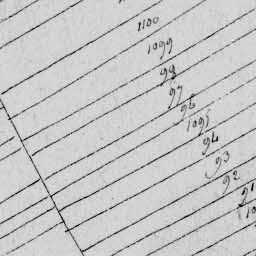 1100
1099
98
97
96
1095
94
93
92
91
10